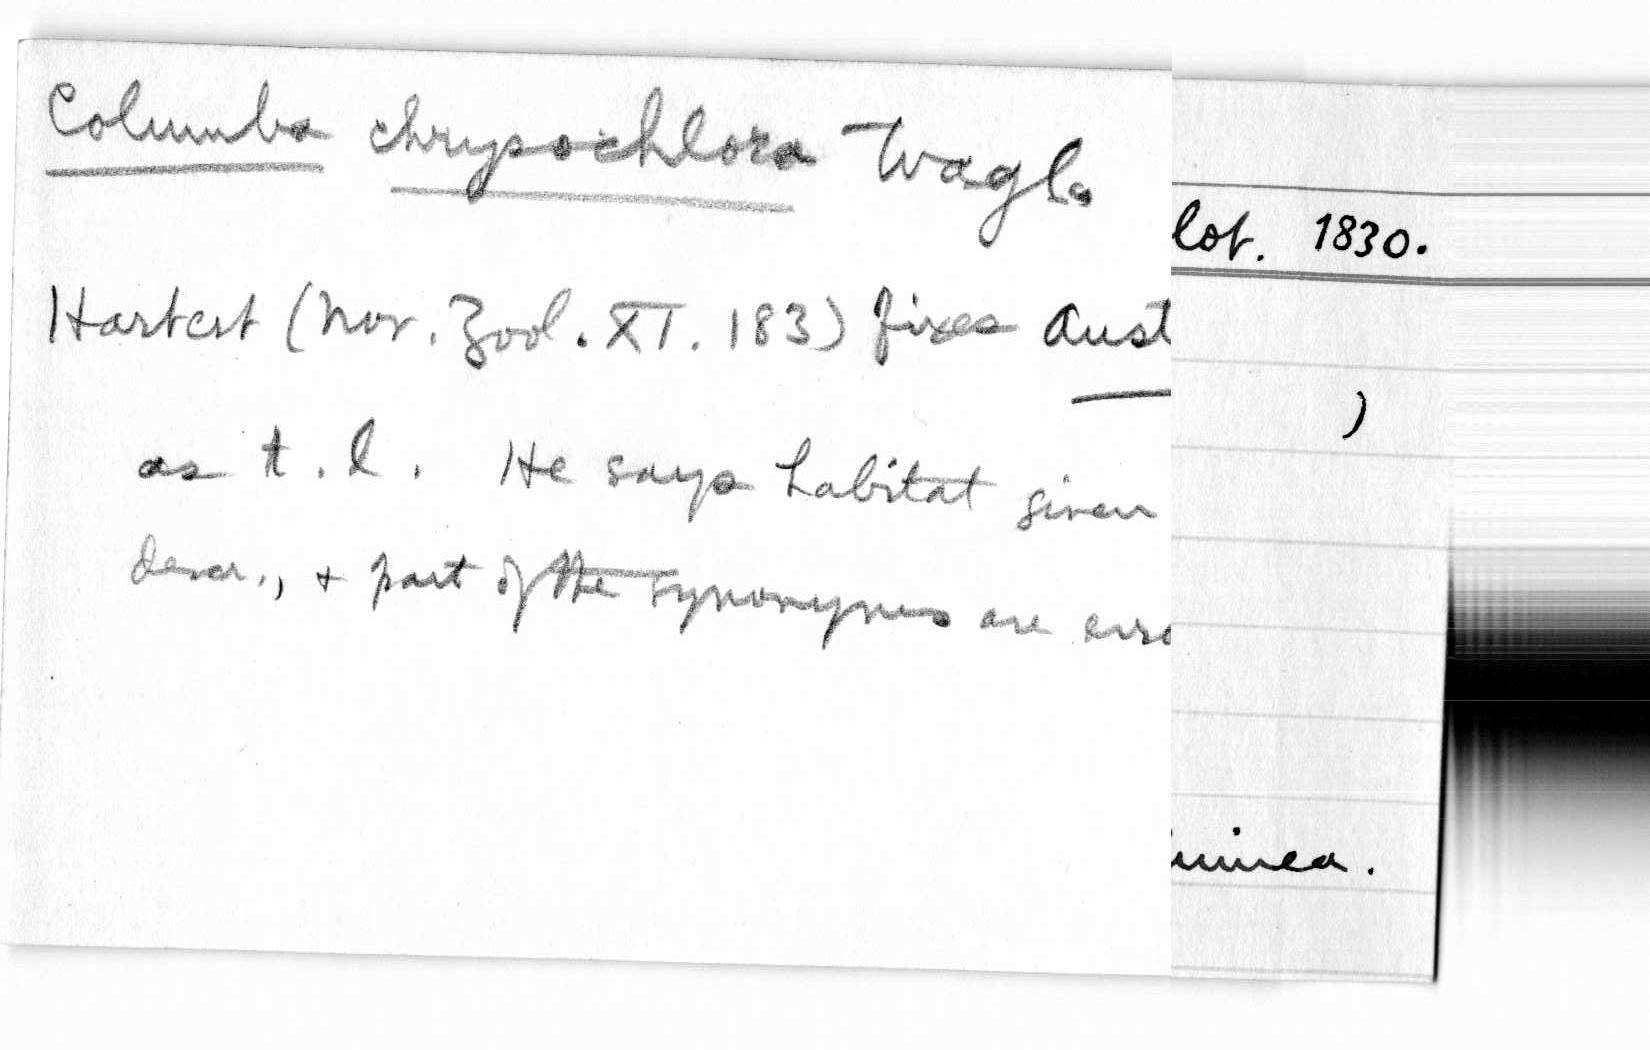 Columba chrysochlora Wagl.
lot. 1830.
Hartert (Nov. Zool. XI. 183) fixes Aust
)
as t.l. He says habitat given
descr., + part of the synonyms are erro
uinea.